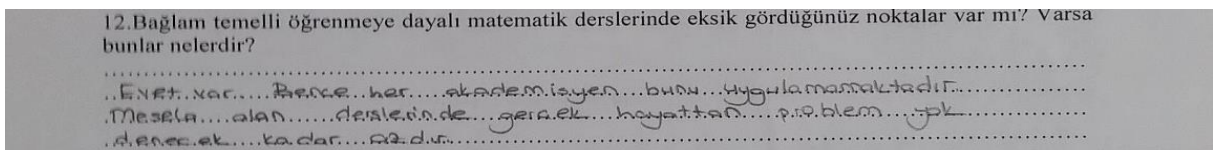 12.Bağlam temelli öğrenmeye dayalı matematik derslerinde eksik gördüğünüz noktalar var mı? Varsa
bunlar nelerdir?
Evet var. Bence her akademisyen bunu uygulamamaktadır.
Mesela alan derslerinde gerçek hayattan problem yok
denecek kadar azdır.